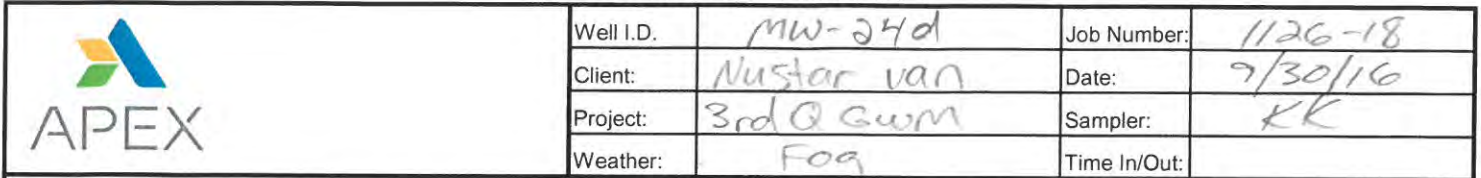 Well I.D. MW-24d Job Number: 1126-18
Client: Nustar van Date: 9/30/16
APEX Project: 3rd Q GWM Sampler: KK
Weather: Fog Time In/Out: